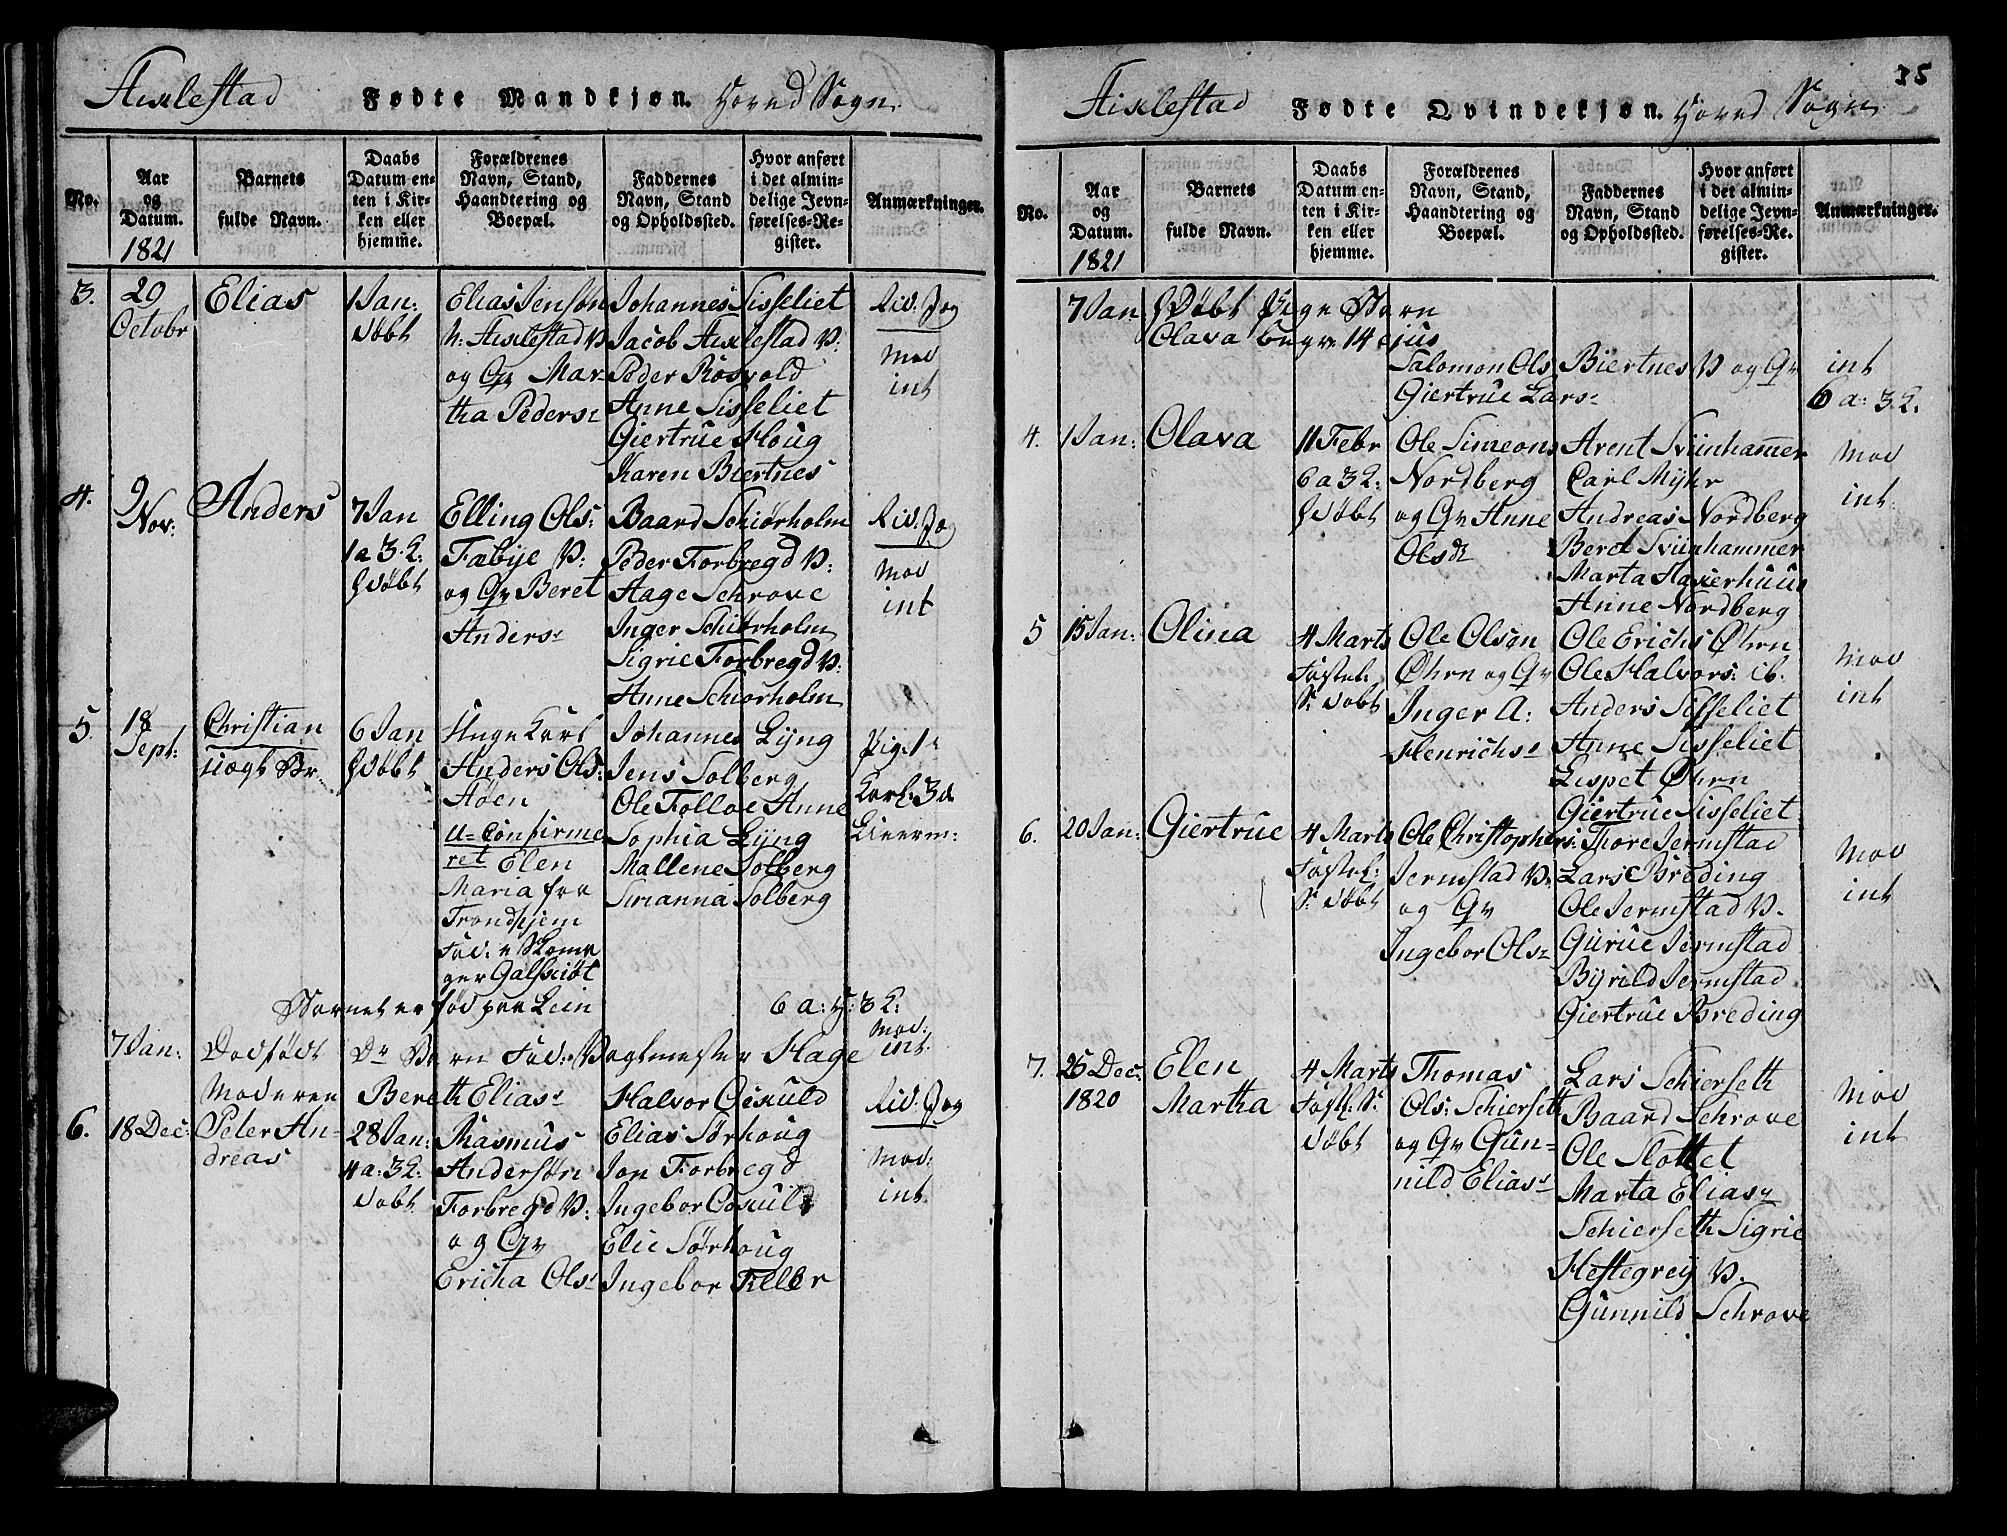 Auxlestad Fødte Mandkjøn. Hoved Sogn.
No.
Aar og Datum. 1821
Barnets fulde Navn.
Daabs Datum enten i Kirken eller hjemme.
Forældrenes Navn, Stand, Haandtering og Boepæl.
Faddernes Navn, Stand og Opholdssted.
Hvor anført i det almindelige Jevnførelses-Register.
Anmærkninger.
3. 29 Octobr Elias 1 Jan: døbt
Elias Jensøn
Auxlestad P
og Qv Mar-
tha Peders
Johannes Sisseliet
Jacob Auxlestad P:
Peder Rosvold
Anne Sisseliet
Giertrue Houg
Karen Biertnes
Mod
int
4. 9 Nov: Anders 7 Jan
1 a 3 E:
Elling Ols:
Fæbye P:
og Qv Beret
Anders
Baard Schiørholm
Peder Forbregd P:
Aage Schrove
Inger Schiørholm
Sigrie Forbregd P:
Anne Schiørholm
Mod
int
5. 18 Sept: Christian
6 Jan
Unge Karl
Anders Ols:
Støen
U-Confirme
ret Elen
Maria fra
Trondhjem
Johannes Lyng
Jens Solberg
Ole Folloe Anne
Sophia Lyng
Mallene Solberg
Susanna Solberg
Barnet er fød paa Lein 6 a: H: 3 E:
7 Jan: Dødfødt Dr Barn Fad: Vagtmester Hage
Mod: int.
Moderen Bereth Elias Halvor Oxuld
6. 18 Dec: Peter An-
dreas
28 Jan:
4 a: 3 E:
døbt
Rasmus
Andersøn
Forbregd P:
og Qv
Ericha Ols
Elias Sørhoug
Jon Forbregd
Ingebor Oxuld
Elie Sørhoug
Ingebor Filler
Mod:
int.
Auxlestad Fødte Qvindekjøn. Hoved Sogn 35
No.
Aar og Datum. 1821
Barnets fulde Navn.
Daabs Datum enten i Kirken eller hjemme.
Forældrenes Navn, Stand, Haandtering og Boepæl.
Faddernes Navn, Stand og Opholdssted.
Hvor anført i det almindelige Jevnførelses-Register.
Anmærkninger.
7 Jan Døbt Pige Barn
Olava begr. 14 ejus
Salomon Ols Biertnes P og Qv int
Giertrue Lars 6 a: 3 E.
4. 1 Jan: Olava 11 Febr
6 a 3 E:
Ole Simeons
Nordberg
og Qv Anne
Olsd
Arent Sviinhammer
Carl Myhr
Andreas Nordberg
Beret Sviinhammer
Marta Haverhuus
Anne Nordberg
Mod
int
5 15 Jan: Olina 4 Marts
Fastel:
S: døbt
Ole Olsøn
Øhrn og Qv
Inger A:
Henrichs
Ole Erichs Øhrn
Ole Halvors: ib.
Anders Sisseliet
Anne Sisseliet
Lispet Øhrn
Giertrue Sisseliet
Mod
int
6. 20 Jan: Giertrue 4 Marts
Fastel:
S: døbt
Ole Christophers:
Jermstad P.
og Qv
Ingebor Ols
Thore Jermstad
Lars Breding
Ole Jermstad P.
Gurue Jermstad
Byrild Jermstad
Giertrue Breding
Mod
int
7. 25 Dec: 1820 Elen
Martha
4 Marts
Fastl: S:
døbt
Thomas
Ols: Schierseth
og Qv Gun-
nild Elias
Lars Schierseth
Baard Schrove
Ole Slottet
Marta Elias
Schierseth Sigrie
Hestegrey P.
Gunnild Schrove
Mod
int